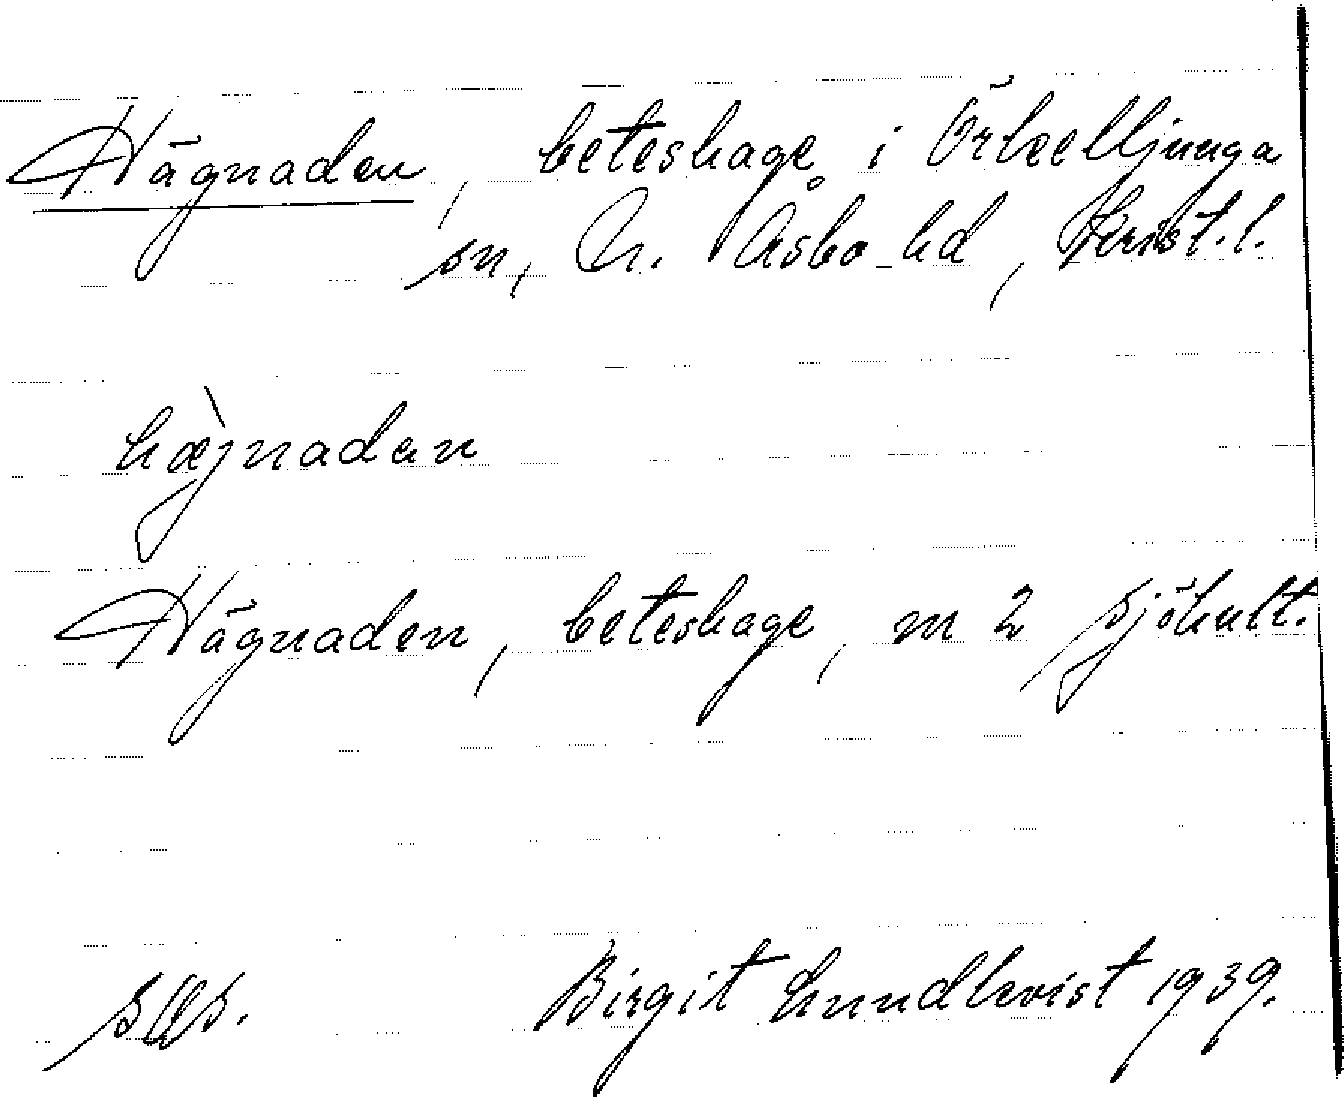 Hägnaden, beteshage i Örkelljunga
sn, N. Åsbo hd, Krist. l.
hæ̀jnadan
Hägnaden, beteshage, m 2 Sjöhult.
Birgit Lundkvist 1939.